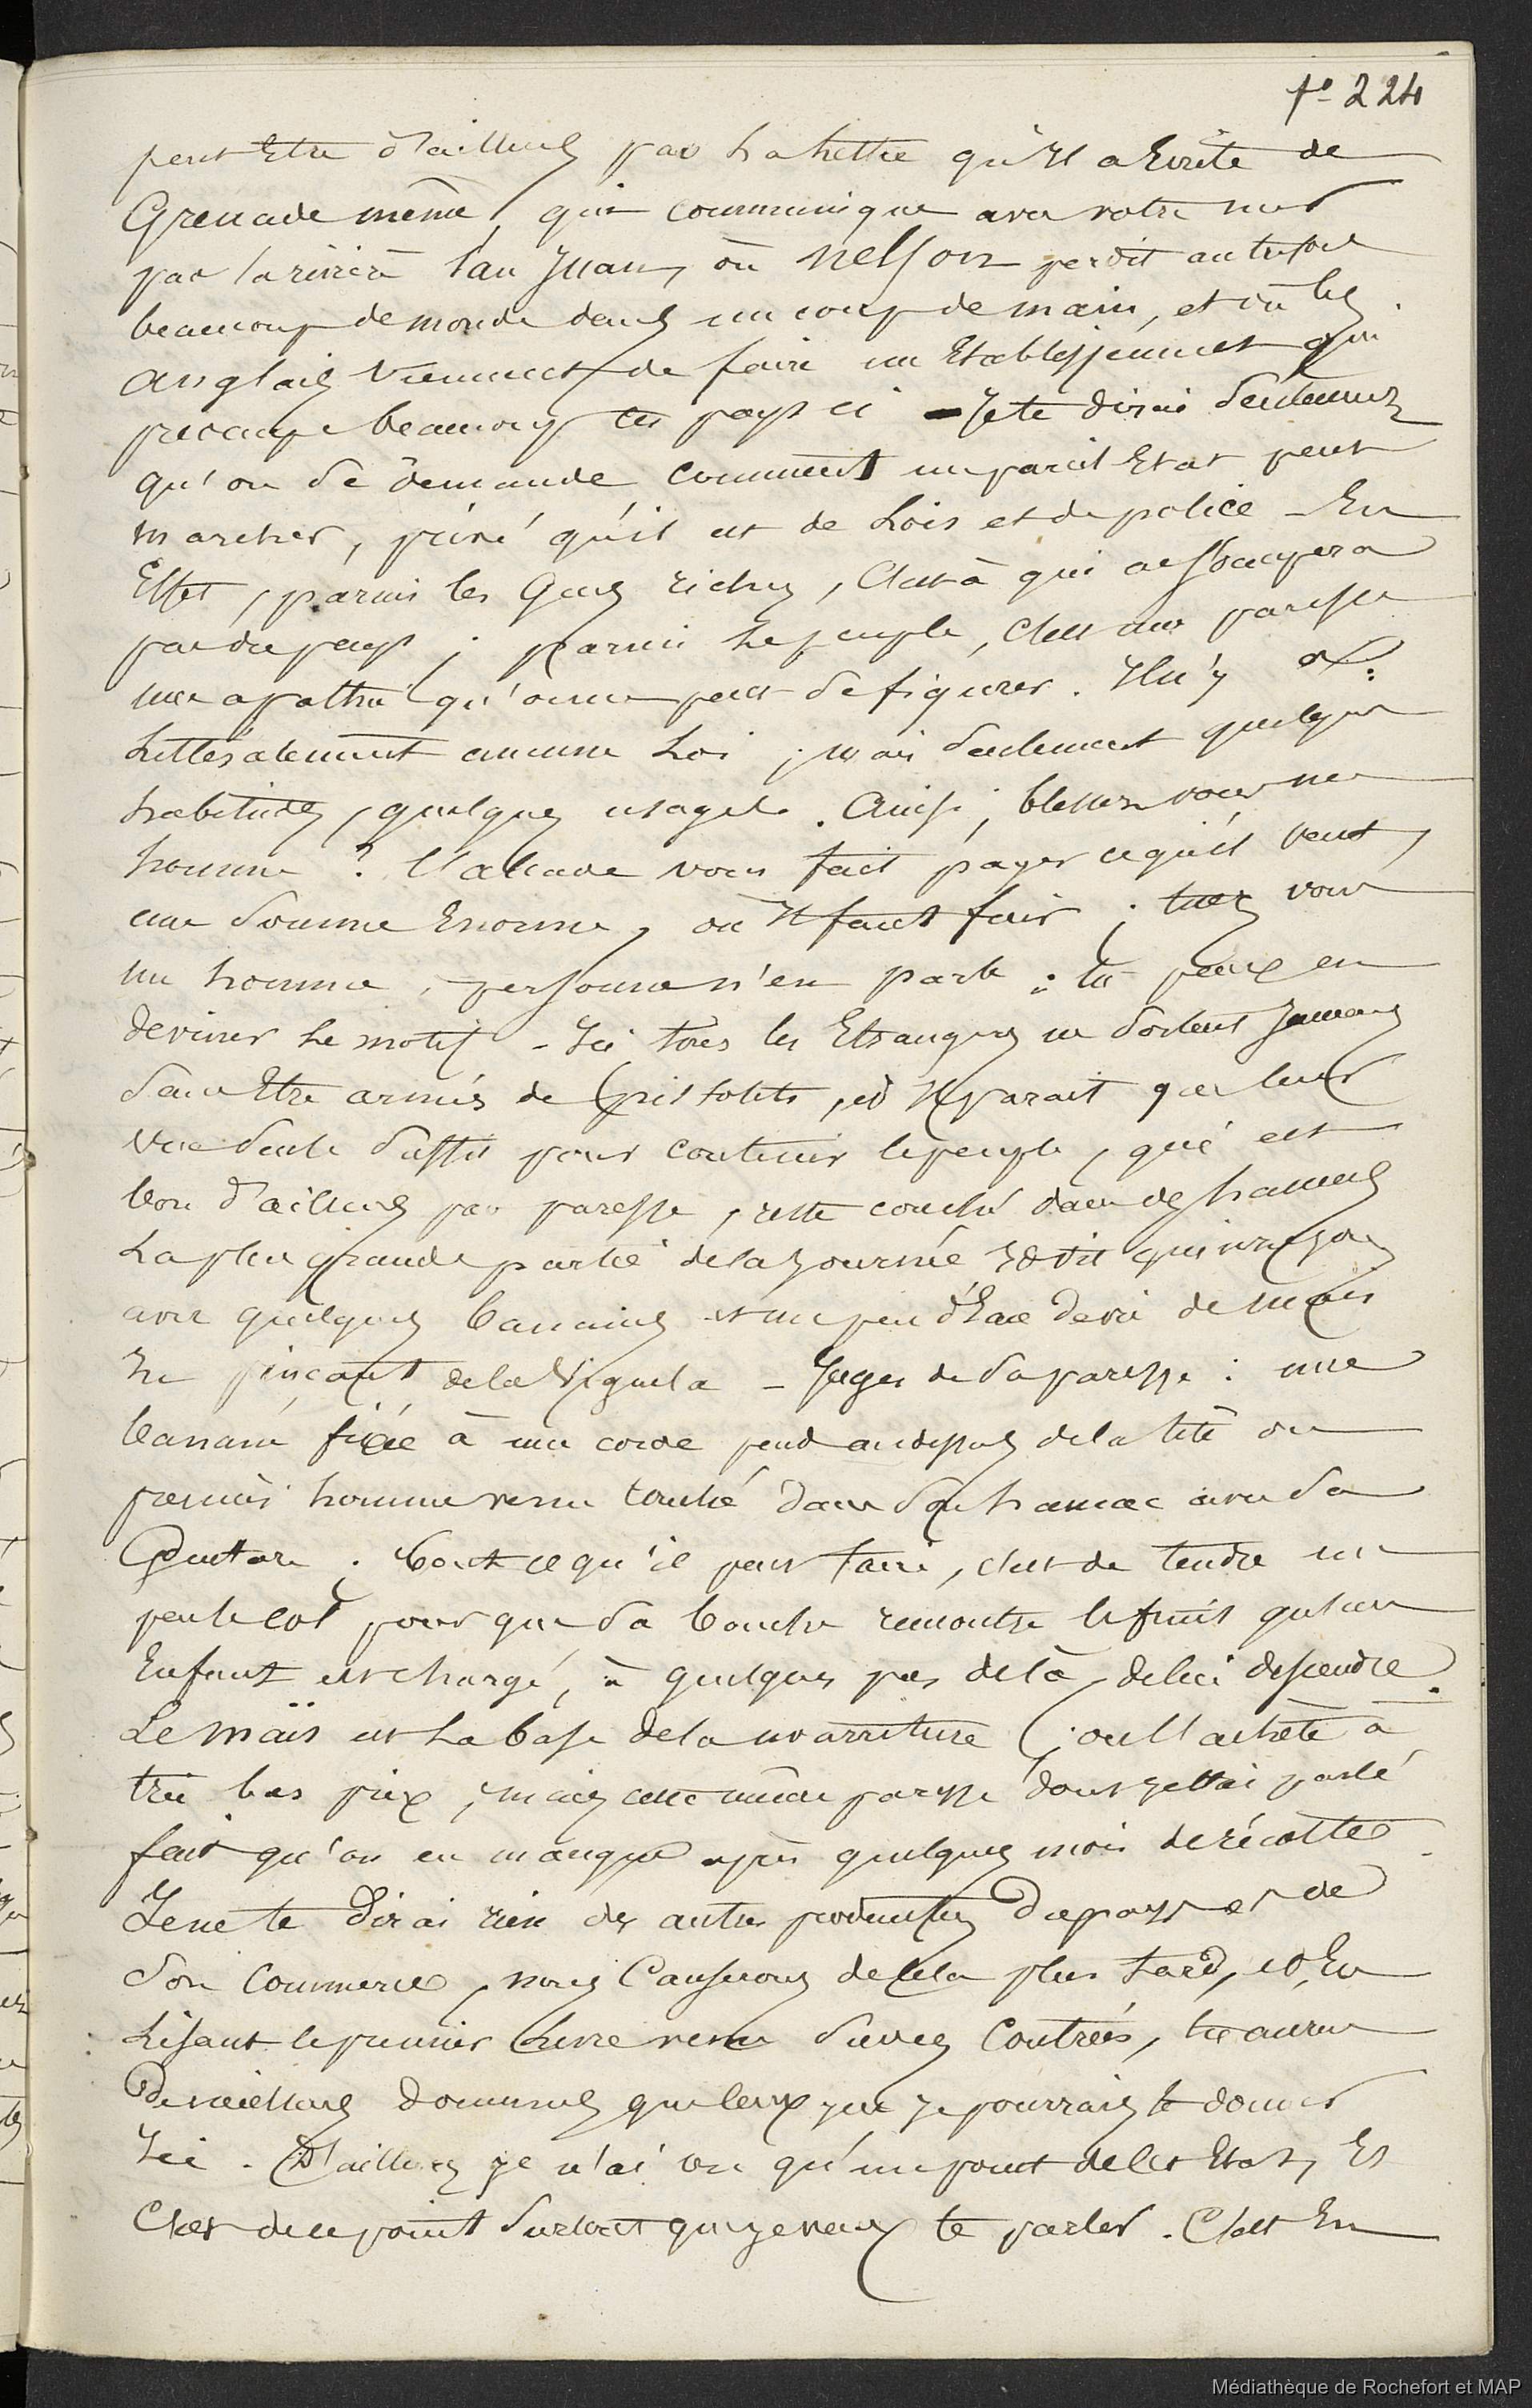 fo 224
peut Etre d'ailleurs par la lettre qu'Il a Ecrite de
Grenade même, qui communique avec notre mer
par la rivière San Juan, où Nelson perdit autrefois
beaucoup de monde dans un coup de main, et où les
anglais viennent de faire un Etablissement qui
preoccupe beaucoup ces pays ci - Je te dirai seulement
qu'on se demande comment un pareil Etat peut
marcher, privé qu'il est de Lois et de police - En
Effet, parmi les Gens riches, c'est à qui ne s'occupera
pas du pays ; parmi le peuple, c'est une paresse
une apathie qu'on ne peut se figurer. Il n'y a
Littéralement aucune Loi ; mais seulement quelques
habitudes, quelques usages. Ainsi, blessez vous un
homme ? l'alcade vous fait payer ce qu'il veut,
une somme Enorme, où Il faut fuir ; tuez vous
un homme, personne n'en parle : tu peux en
deviner le motif - Ici tous les Etrangers ne sortent jamais
sans Etre armés de pistolets, et Il parait que leur
vue seule suffit pour contenir le peuple, qui est
bon d'ailleurs par paresse, reste couché dans des hamacs
La plus grande partie de la journée Et vit
avec quelques bananes et un peu d'Eau de vie de maïs
En pinçant de la Viguela - Juges de sa paresse : une
banane fixée à une corde pend au dessus de la tête du
premier homme venu couché dans son hamac avec sa
Guitare ; tout ce qu'il peut faire, c'est de tendre un
peu le col pour que sa bouche rencontre le fruit qu'un
Enfant est chargé, à quelques pas de là, de lui descendre.
Le maïs est La base de la nourriture ; on l'achète à
très bas prix, mais cette même paresse dont je t'ai parlé
fait qu'on en manque après quelques mois de récolte.
Je ne te dirai rien des autres productions du pays et de
son Commerce, nous Causerons de cela plus tard, et En
Lisant le premier Livre venu sur ces Contrées, tu auras
De meilleurs documens que ceux que je pourrais te donner
Ici. D'ailleurs je n'ai vu qu'un point de cet Etat, Et
C'est de ce point surtout que je veux te parler. C'est En
Médiathèque de Rochefort et MAP